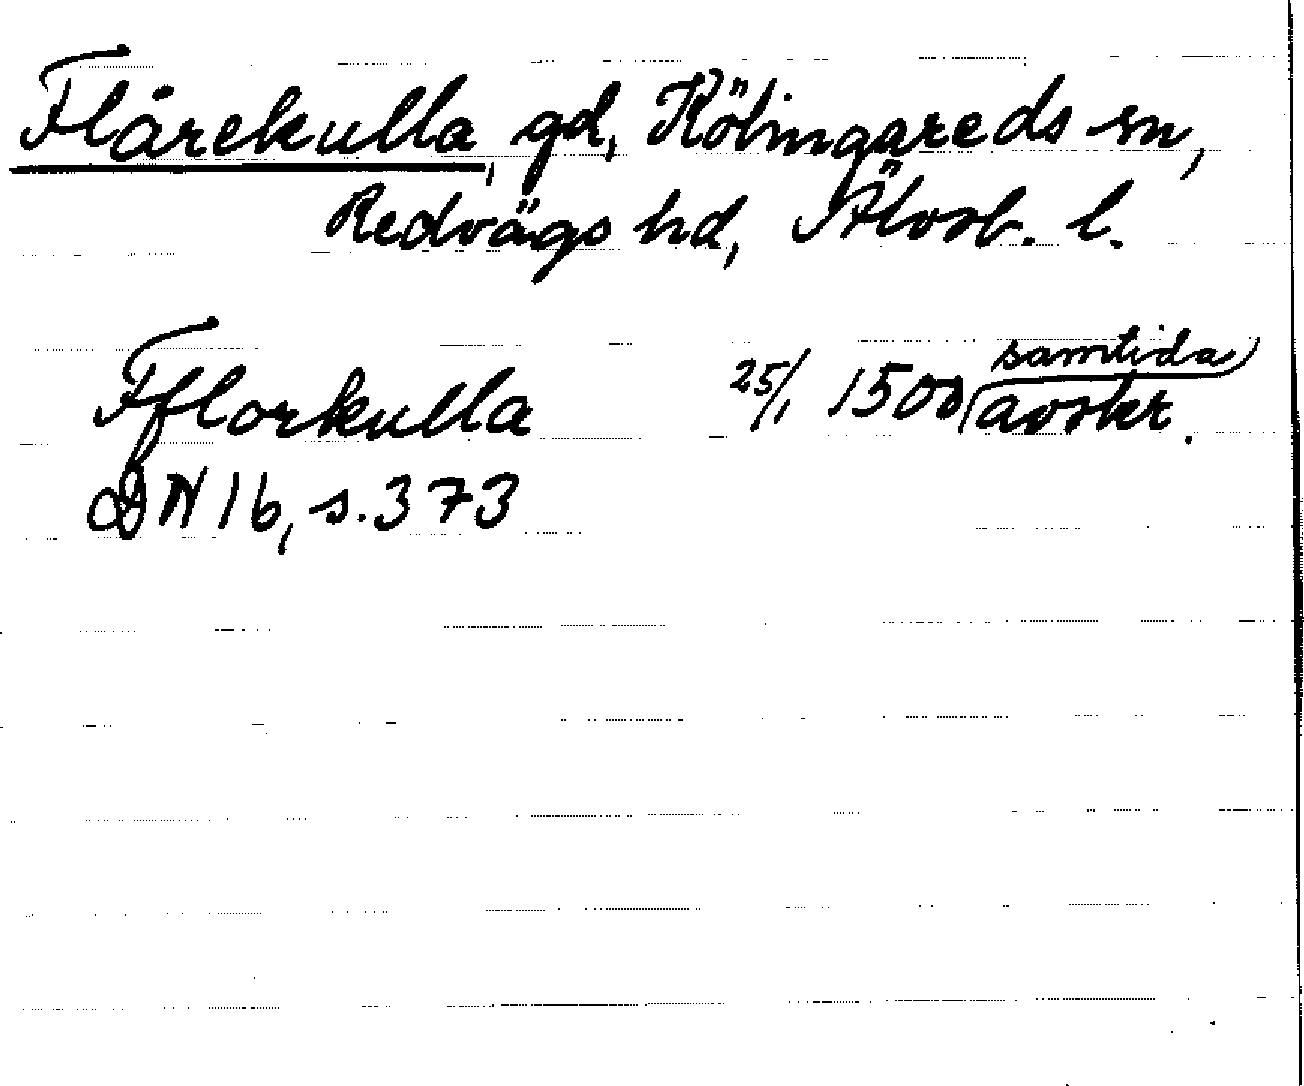 Flårekulla, gd, Kölingareds sn,
Redvägs hd, Älvsb. l.
Fflorkulla 25/1 1500 (samtida avskr.)
DN 16, s. 373